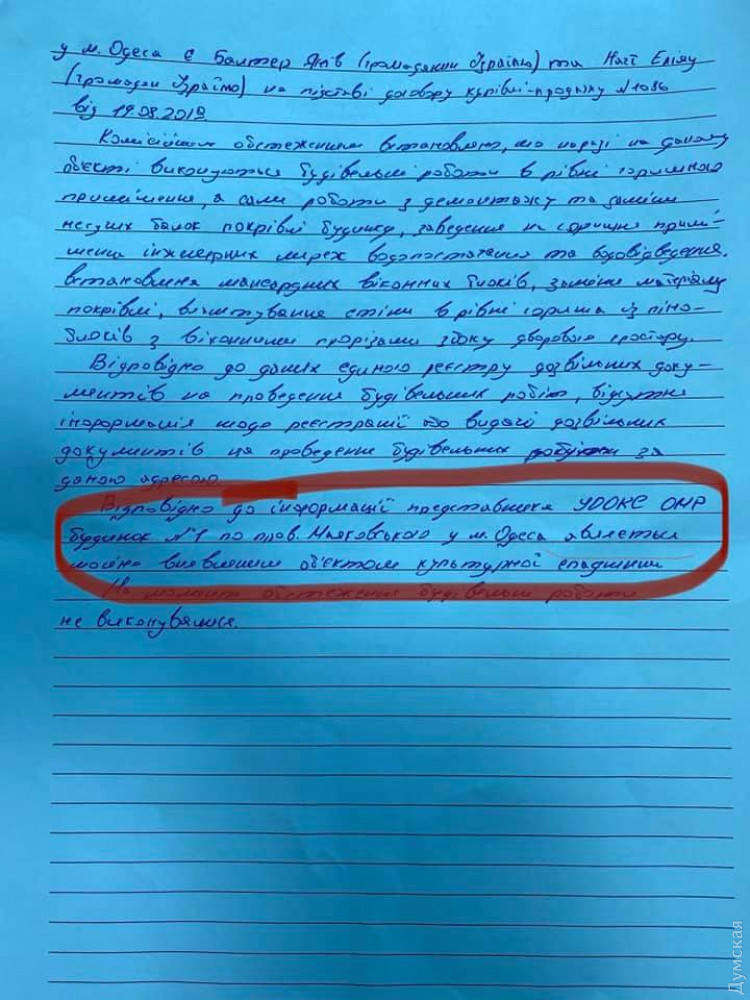 у м. Одеса є Балтер Яків (громадянин Ізраїлю) та Наґі Еліяу
(громадян Ізраїлю) на підставі договору купівлі-продажу №1086
від 19.08.2019
Комісійним обстеженням встановлено, що наразі на даному
об'єкті виконуються будівельні роботи в рівні горищного
приміщення, а саме роботи з демонтажу та заміни
несущих балок покрівлі будинку, заведення на горищне примі-
щення інженерних мереж водопостачання та водовідведення.
встановлення мансардних віконних блоків, заміни матеріалу
покрівлі, влаштування стіни в рівні горища із піно-
блоків з віконними прорізами збоку дворового простору.
Відповідно до даних єдиного реєстру дозвільних доку-
ментів на проведення будівельних робіт, відсутня
інформація щодо реєстрації або видачі дозвільних
документів на проведення будівельних за
даною адресою.
Відповідно до інформації представника УДОКС ОМР
будинок №1 по пров. Маяковського у м. Одеса являється
виявленим об'єктом культурної спадщини
На момент обстеження будівельні роботи
не виконувалися.
Думская